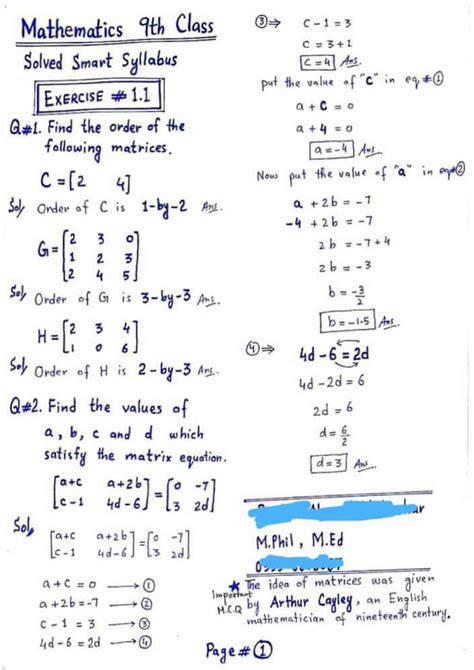 Mathematics 9th Class
Solved Smart Syllabus
EXERCISE # 1.1
Q#1. Find the order of the
following matrices.
C = [2 4]
Sol, Order of C is 1-by-2 Ans.
G = [2 3 0
1 2 3
2 4 5]
Sol, Order of G is 3-by-3 Ans.
H = [2 3 4
1 0 6]
Sol, Order of H is 2-by-3 Ans.
Q#2. Find the values of
a, b, c and d which
satisfy the matrix equation.
[a+c a+2b
c-1 4d-6] = [0 -7
3 2d]
Sol,
[a+c a+2b
c-1 4d-6] = [0 -7
3 2d]
a + c = 0 → ①
a + 2b = -7 → ②
c - 1 = 3 → ③
4d - 6 = 2d → ④
③ ⇒ c - 1 = 3
c = 3 + 1
c = 4 Ans.
put the value of "c" in eq#①
a + c = 0
a + 4 = 0
a = -4 Ans.
Now put the value of "a" in eq#②
a + 2b = -7
-4 + 2b = -7
2b = -7 + 4
2b = -3
b = -3/2
b = -1.5 Ans.
④ ⇒ 4d - 6 = 2d
4d - 2d = 6
2d = 6
d = 6/2
d = 3 Ans.
M.Phil, M.Ed
Important M.C.Q
★ The idea of matrices was given
by Arthur Cayley, an English
mathematician of nineteenth century.
Page # ①